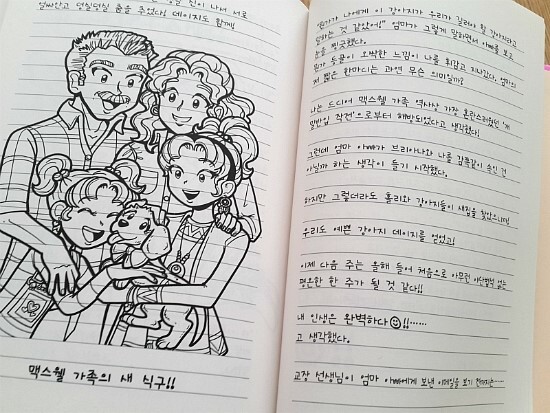 얼싸안고 덩실덩실 춤을 추었다! 데이지도 함께!!
맥스웰 가족의 새 식구!!
나에게 이 강아지가 우리가 길러야 할 강아지라고
말하는 것 같았어!" 엄마가 그렇게 말하면서 아빠를 보고
눈을 찡긋했다.
뭔가 등골이 오싹한 느낌이 나를 휘감고 지나갔다. 엄마의
저 짧은 한마디는 과연 무슨 의미일까?
나는 드디어 맥스웰 가족 역사상 가장 혼란스러웠던 '개
밀반입 작전'으로부터 해방되었다고 생각했다!
그런데 엄마 아빠가 브리아나와 나를 감쪽같이 속인 건
아닐까 하는 생각이 들기 시작했다.
하지만 그렇더라도 홀리와 강아지들이 새집을 찾았으니까!
우리도 예쁜 강아지 데이지를 얻었고!
이제 다음 주는 올해 들어 처음으로 아무런 야단법석 없는
평온한 한 주가 될 것 같다!!
내 인생은 완벽하다☺!!……
고 생각했다.
교장 선생님이 엄마 아빠에게 보낸 이메일을 보기 전까지는……